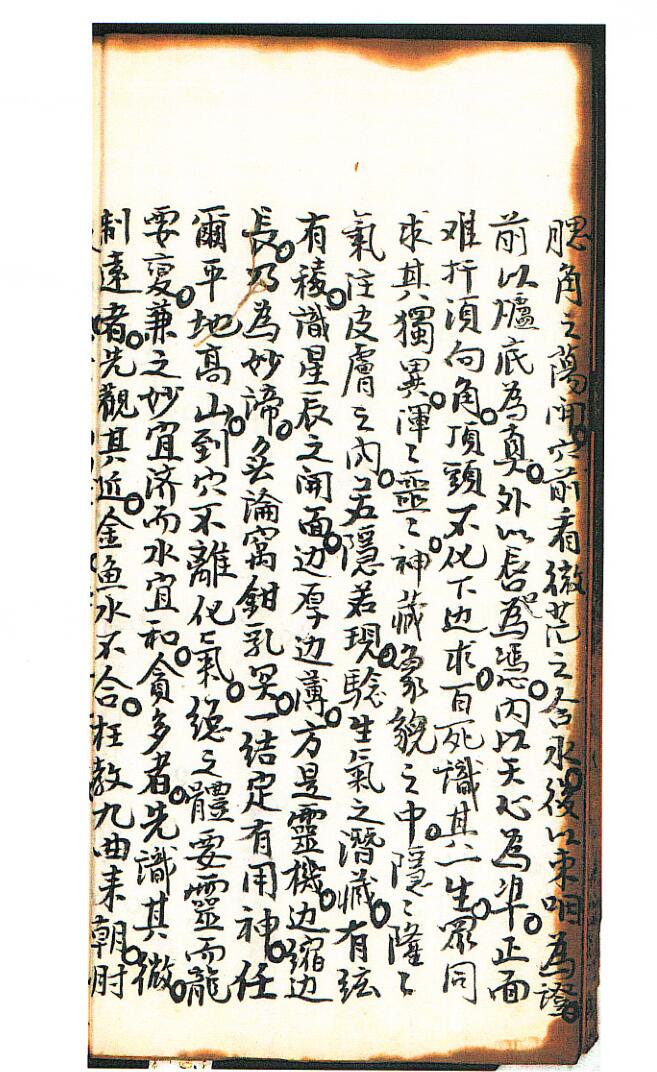 腮角之陽開穴前看微茫之合水後以束咽為證
前以爐底為真外以唇為憑內以天心為準正面
难扦須向角頂頭不化下边求百死識其一生眾同
求其獨異渾々靈々神藏象貌之中隱々隆々
氣注皮膚之內若隱若現騐生氣之潛藏有弦
有稜識星辰之開面边厚边薄方是靈機边縮边
長乃為妙諦無論窩鉗乳突一結定有用神任
爾平地高山到穴不離化氣總之體要靈而龍
要變兼之妙宜济而水宜和貪多者先識其微
制遠者先觀其近金魚水不合枉教九曲来朝肘